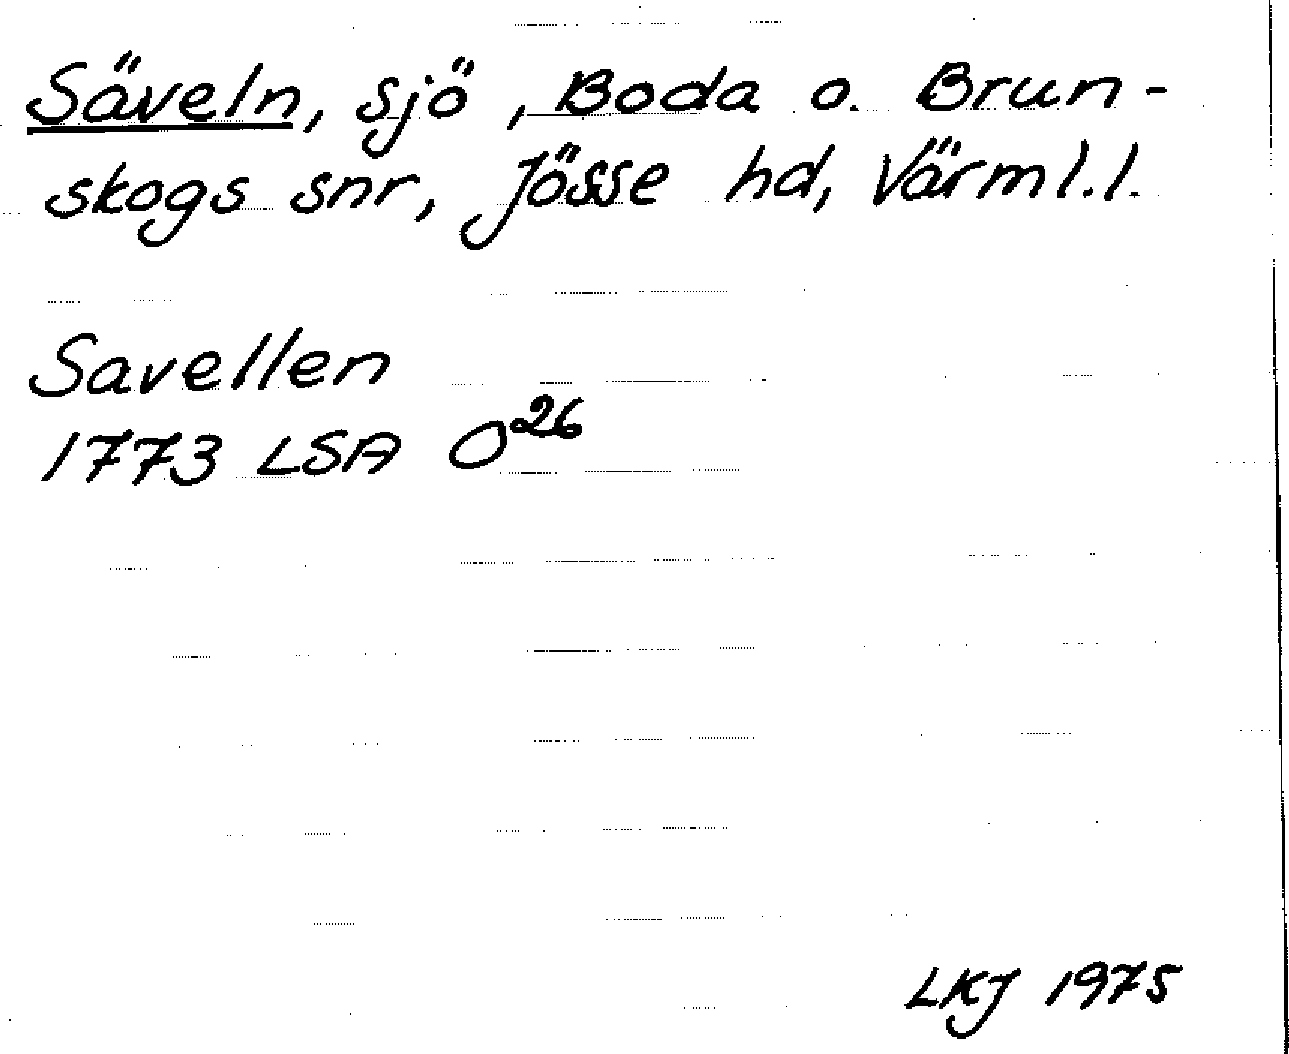 Säveln, sjö, Boda o. Brun-
skogs snr, Jösse hd, Värml. l.
Savellen
1773 LSA O26
LKJ 1975